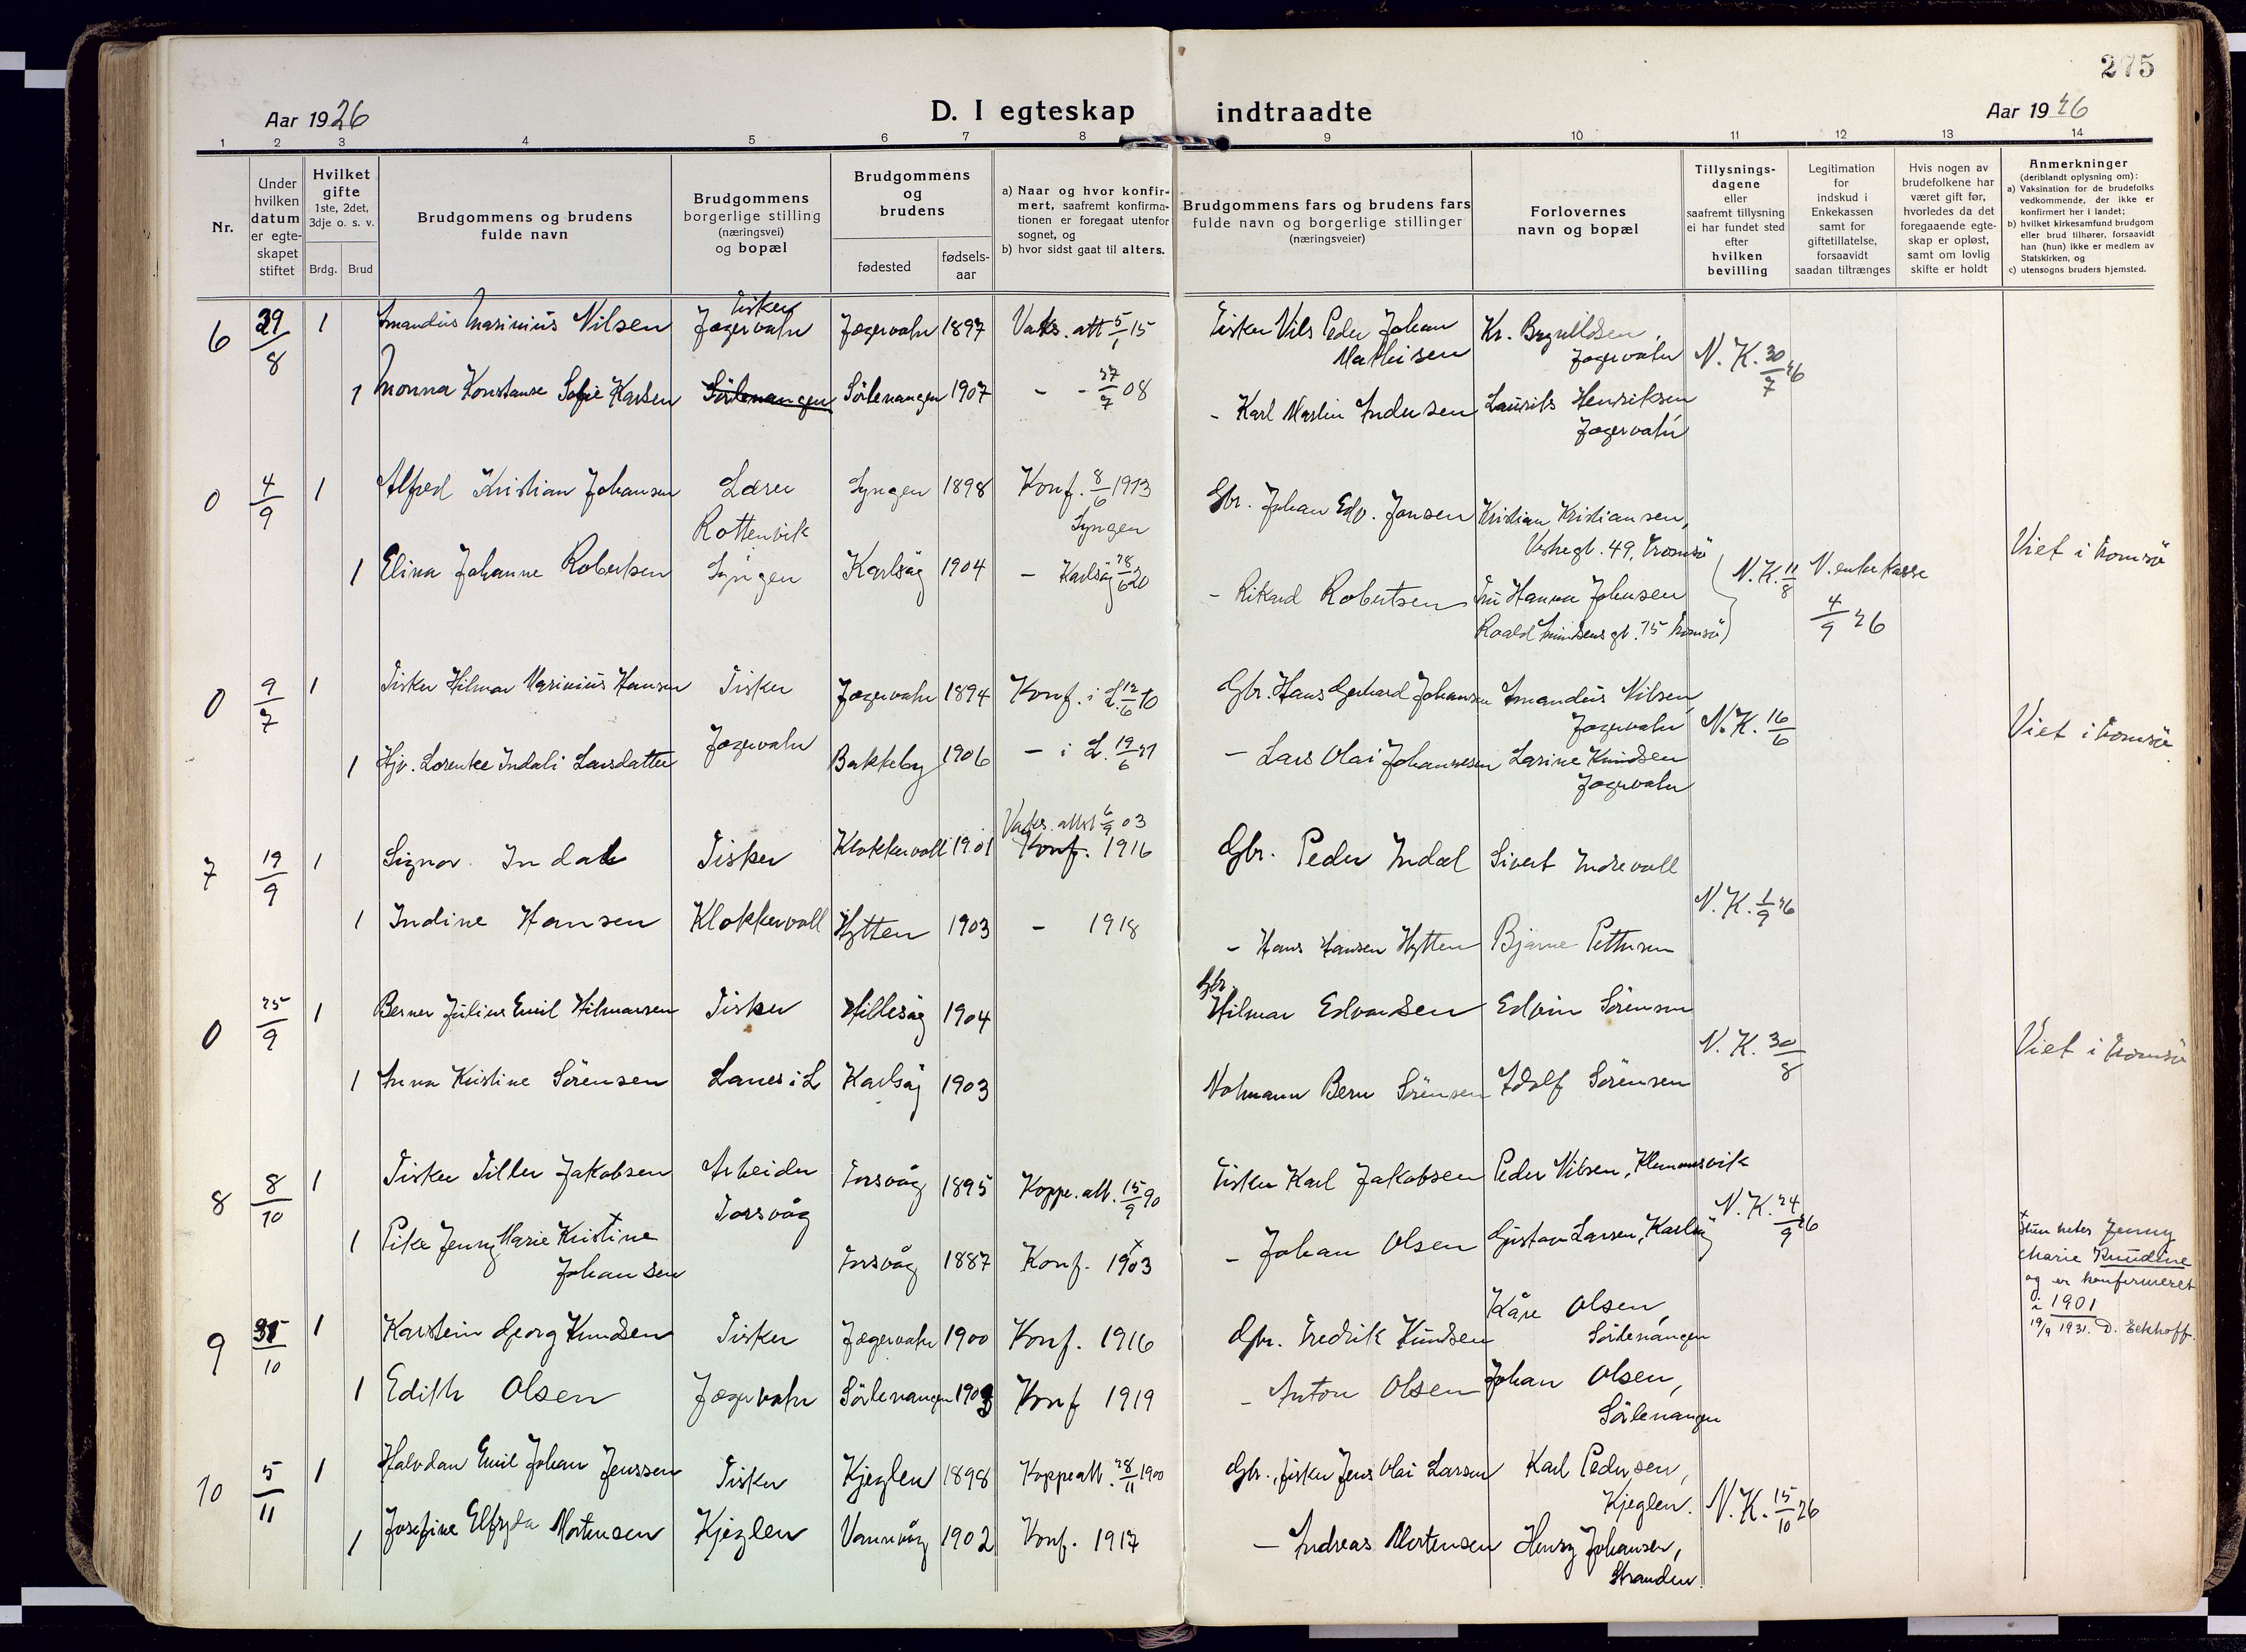 275
Aar 1926
D. I egteskap
indtraadte
Aar 1926
1 2 3 4 5 6 7 8 9 10 11 12 13 14
Nr.
Under
hvilken
datum
er egte-
skapet
stiftet
Hvilket
gifte
1ste, 2det,
3dje o. s. v.
Brdg. Brud
Brudgommens og brudens
fulde navn
Brudgommens
borgerlige stilling
(næringsvei)
og bopæl
Brudgommens
og
brudens
fødested
fødsels-
aar
a) Naar og hvor konfir-
mert, saafremt konfirma-
tionen er foregaat utenfor
sognet, og
b) hvor sidst gaat til alters.
Brudgommens fars og brudens fars
fulde navn og borgerlige stillinger
(næringsveier)
Forlovernes
navn og bopæl
Tillysnings-
dagene
eller
saafremt tillysning
ei har fundet sted
efter
hvilken
bevilling
Legitimation
for
indskud i
Enkekassen
samt for
giftetillatelse,
forsaavidt
saadan tiltrænges
Hvis nogen av
brudefolkene har
været gift før,
hvorledes da det
foregaaende egte-
skap er opløst,
samt om lovlig
skifte er holdt
Anmerkninger
(deriblandt oplysning om):
a) Vaksination for de brudefolks
vedkommende, der ikke er
konfirmert her i landet;
b) hvilket kirkesamfund brudgom
eller brud tilhører, forsaavidt
han (hun) ikke er medlem av
Statskirken, og
c) utensogns bruders hjemsted.
6 29/8 1 Amandus Marinius Nilsen Fisker Jægervatn Jægervatn 1897 Vaks. att 5/1 15 Fisker Nils Peder Johan Mathisen Kr. Brynildsen, Jægervatn N. K. 30/7 26
1 Monna Konstanse Sofie Karlsen Sörlenangen Sörlenangen 1907 - - 27/7 08 - Karl Martin Andersen Laurits Henriksen Jægervatn
0 4/9 1 Alfred Kristian Johansen Lærer Rottenvik Lyngen 1898 Konf. 8/6 1913 Lyngen Gbr. Johan Edv. Jensen Kristian Kristiansen, Vestregt. 49, Tromsö
1 Elina Johanne Robertsen Lyngen Karlsöy 1904 - Karlsöy 28/6 20 - Rikard Robertsen Fru Hanna Johnsen Roald Amundsens gt. 75 Tromsö N. K. 11/8 N. enkekasse 4/9 26 Viet i Tromsö
0 9/7 1 Fisker Hilmar Marinius Hansen Fisker Jægervatn 1894 Konf. i L. 12/6 10 Gbr. Hans Gerhard Johansen Amandus Nilsen, Jægervatn N. K. 16/6 Viet i Tromsö
1 Hjv. Lorentze Indali Larsdatter Jægervatn Bakkeby 1906 - i L. 19/6 21 - Lars Olai Johannesen Larine Knudsen Jægervatn
7 19/9 1 Signar Indahl Fisker Klokkervoll 1901 Vaks. attst 6/9 03 Konf. 1916 Gbr. Peder Indal Sivert Indrevoll N. K. 1/9 26
1 Indine Hansen Klokkervoll Hytten 1903 - 1918 - Hans Hansen Hytten Bjarne Pettersen
0 25/9 1 Berner Julius Emil Hilmarsen Fisker Hillesöy 1904 Gbr. Hilmar Edvardsen Edvin Sörensen N. K. 30/8 Viet i Tromsö
1 Anna Kristine Sörensen Lanes i L Karlsöy 1903 Notmann Bern Sörensen Adolf Sörensen
8 8/10 1 Fisker Tiller Jakobsen Arbeider Torsvåg Torsvåg 1895 Koppe. att. 15/9 90 Fisker Karl Jakobsen Peder Nilsen, Klemmesvik N. K. 24/9 26
1 Pike Jenny Marie Kristine x Johansen Torsvåg 1887 Konf. 1903 x - Johan Olsen Gustav Larsen, Karlsöy
x Hun heter Jenny
Marie Knudine
og er konfirmeret
i 1901
19/9 1931. D. Eckhoff.
9 /10 1 Karstein Georg Knudsen Fisker Jægervatn 1900 Konf. 1916 Gbr. Fredrik Knudsen Kåre Olsen, Sörlenangen
1 Edith Olsen Jægervatn Sörlenangen 1903 Konf 1919 - Anton Olsen Johan Olsen, Sörlenangen
10 5/11 1 Halvdan Emil Johan Jenssen Fisker Kjeglen 1898 Koppeatt. 28/11 1900 Gbr., fisker Jens Olai Larsen Karl Pedersen, Kjeglen. N. K. 15/10 26
1 Josefine Elfryda Mortensen Kjeglen Vannvåg 1902 Konf. 1917 - Andreas Mortensen Henry Johansen, Stranden.